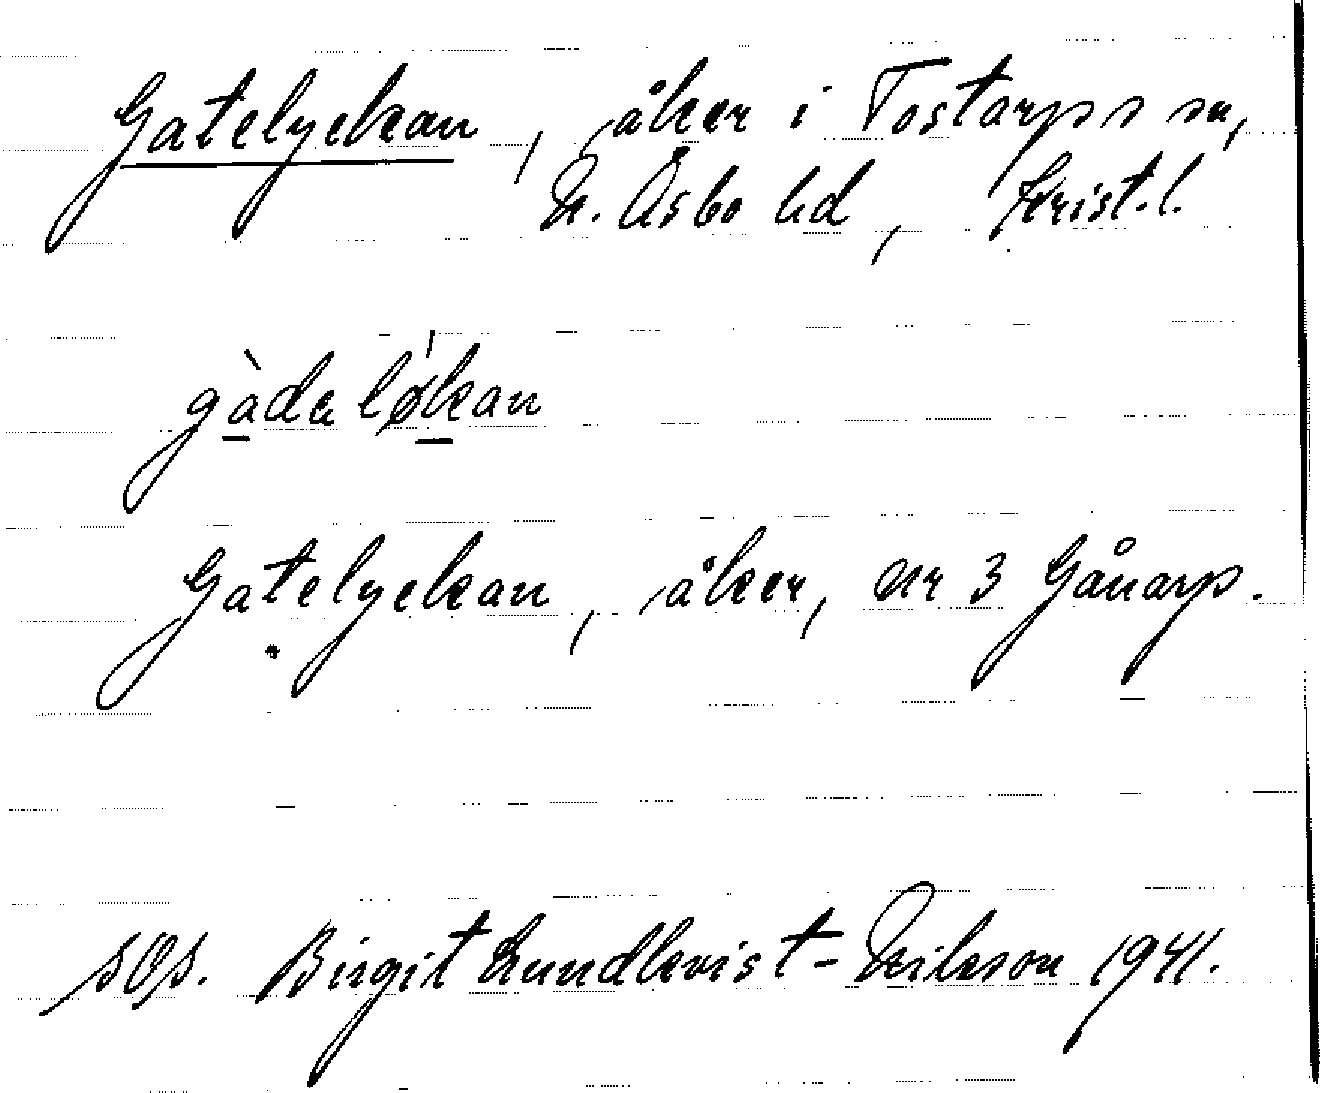 Gatelyckan, åker i Tostarps sn,
N. Åsbo hd, Krist.l.
gàda løkan
Gatelyckan, åker, nr 3 Gånarp.
sOs. Birgit Lundkvist-Nilsson 1941.